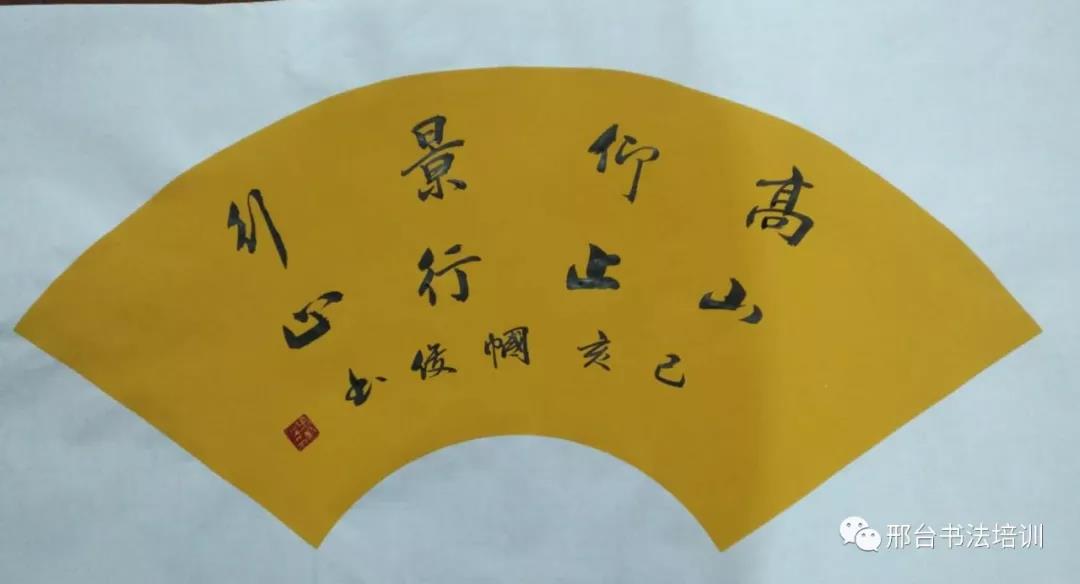 高山
仰止
景行
行止
己亥幗俊书
邢台书法培训